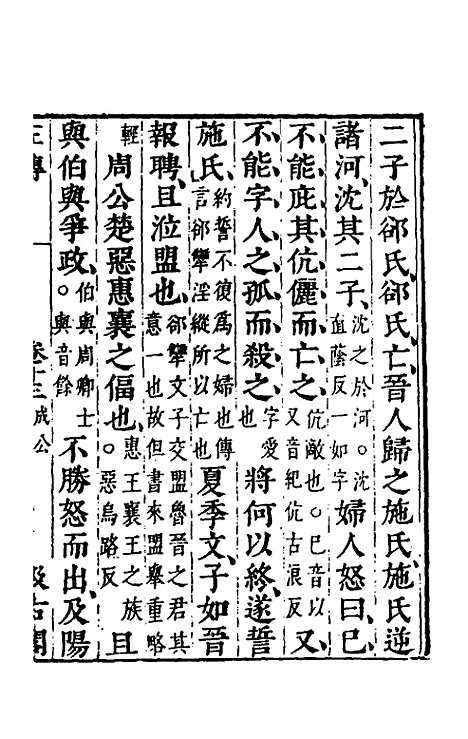 二子於郤氏郤氏亡晉人歸之施氏施氏逆
諸河沈其二子沈之於河○沈直蔭反一如字婦人怒曰已
不能庇其伉儷而亡之伉敵也○已音以又音紀伉古浪反又
不能字人之孤而殺之字愛也將何以終遂誓
施氏約誓不復爲之婦也傳言郤犨淫縱所以亡也夏季文子如晉
報聘且涖盟也郤犨文子交盟魯晉之君其意一也故但書來盟舉重略輕
周公楚惡惠襄之偪也惠王襄王之族○惡烏路反且
與伯與爭政伯與周卿士○與音餘不勝怒而出及陽
左傳 卷十三成公 汲古閣